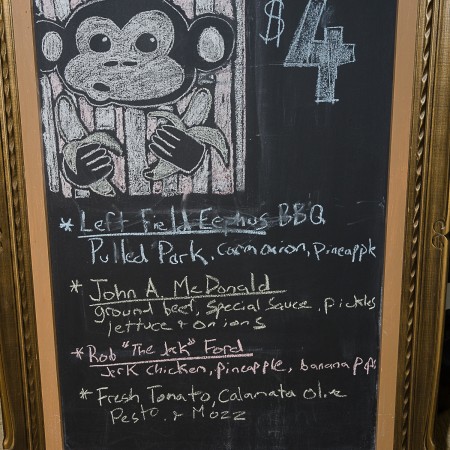 $4
* Left Field Eephus BBQ
Pulled Pork, carm onion, pineapple
* John A. McDonald
ground beef, special sauce, pickles
lettuce + onions
* Rob "The Jerk" Ford
Jerk chicken, pineapple, banana
* Fresh Tomato, Calamata Olive
Pesto, + Mozz